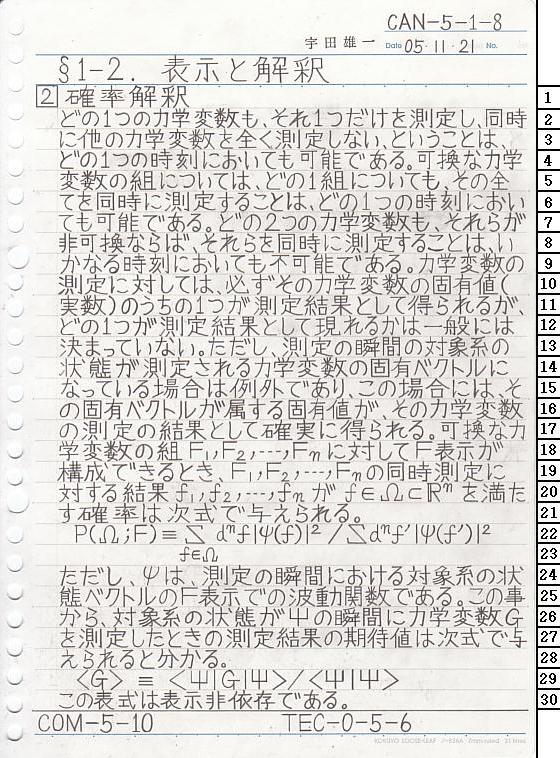 CAN-5-1-8
宇田雄一 Date 05・11・21 No.
§1-2. 表示と解釈
2 確率解釈
どの1つの力学変数も、それ1つだけを測定し、同時
に他の力学変数を全く測定しない、ということは、
どの1つの時刻においても可能である。可換な力学
変数の組については、どの1組についても、その全
てを同時に測定することは、どの1つの時刻におい
ても可能である。どの2つの力学変数も、それらが
非可換ならば、それらを同時に測定することは、い
かなる時刻においても不可能である。力学変数の
測定に対しては、必ずその力学変数の固有値(
実数)のうちの1つが測定結果として得られるが、
どの1つが測定結果として現れるかは一般には
決まっていない。ただし、測定の瞬間の対象系の
状態が測定される力学変数の固有ベクトルに
なっている場合は例外であり、この場合には、そ
の固有ベクトルが属する固有値が、その力学変数
の測定の結果として確実に得られる。可換な力
学変数の組 F₁,F₂,…,Fₙに対してF表示が
構成できるとき、F₁,F₂,…,Fₙの同時測定に
対する結果 f₁,f₂,…,fₙ が f∈Ω⊂ℝⁿを満た
す確率は次式で与えられる。
P(Ω;F)≡∑dⁿf|ψ(f)|²/∑dⁿf'|ψ(f')|²
f∈Ω
ただし、ψは、測定の瞬間における対象系の状
態ベクトルのF表示での波動関数である。この事
から、対象系の状態がΨの瞬間に力学変数G
を測定したときの測定結果の期待値は次式で与
えられると分かる。
<G> ≡ <Ψ|G|Ψ>/<Ψ|Ψ>
この表式は表示非依存である。
COM-5-10 TEC-0-5-6
KOKUYO LOOSE-LEAF ノ-836A 7mm ruled 31 lines
1
2
3
4
5
6
7
8
9
10
11
12
13
14
15
16
17
18
19
20
21
22
23
24
25
26
27
28
29
30